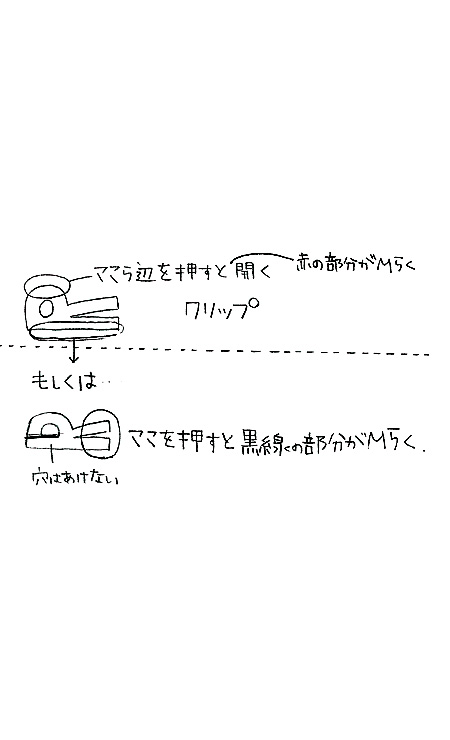 ココら辺を押すと開く
赤の部分がひらく
クリップ
もしくは…
ココを押すと黒線の部分がひらく.
穴はあけない